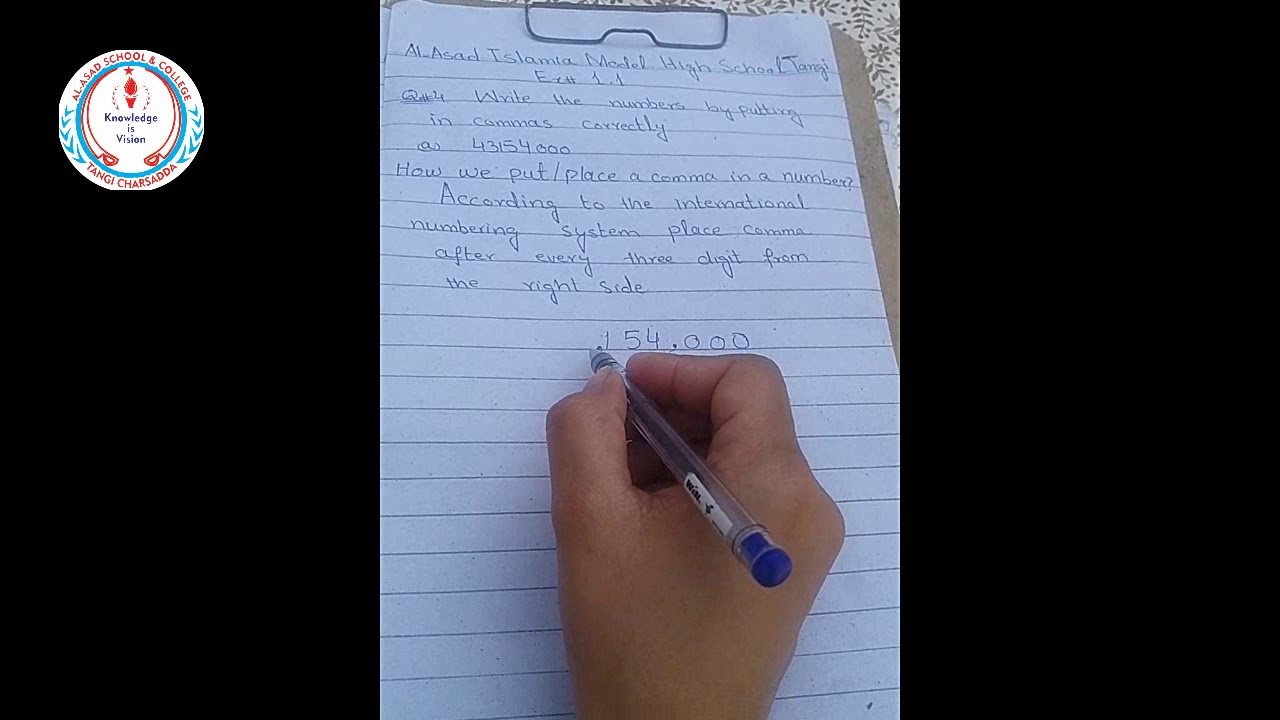 AL-ASAD SCHOOL & COLLEGE
Knowledge
is
Vision
TANGI CHARSADDA
Al-Asad Islamia Model High School Tangi
Ex# 1.1
Q#4 Write the numbers by putting
in commas correctly
a) 43154000
How we put/place a comma in a number?
According to the international
numbering system place comma
after every three digit from
the right side
,154,000